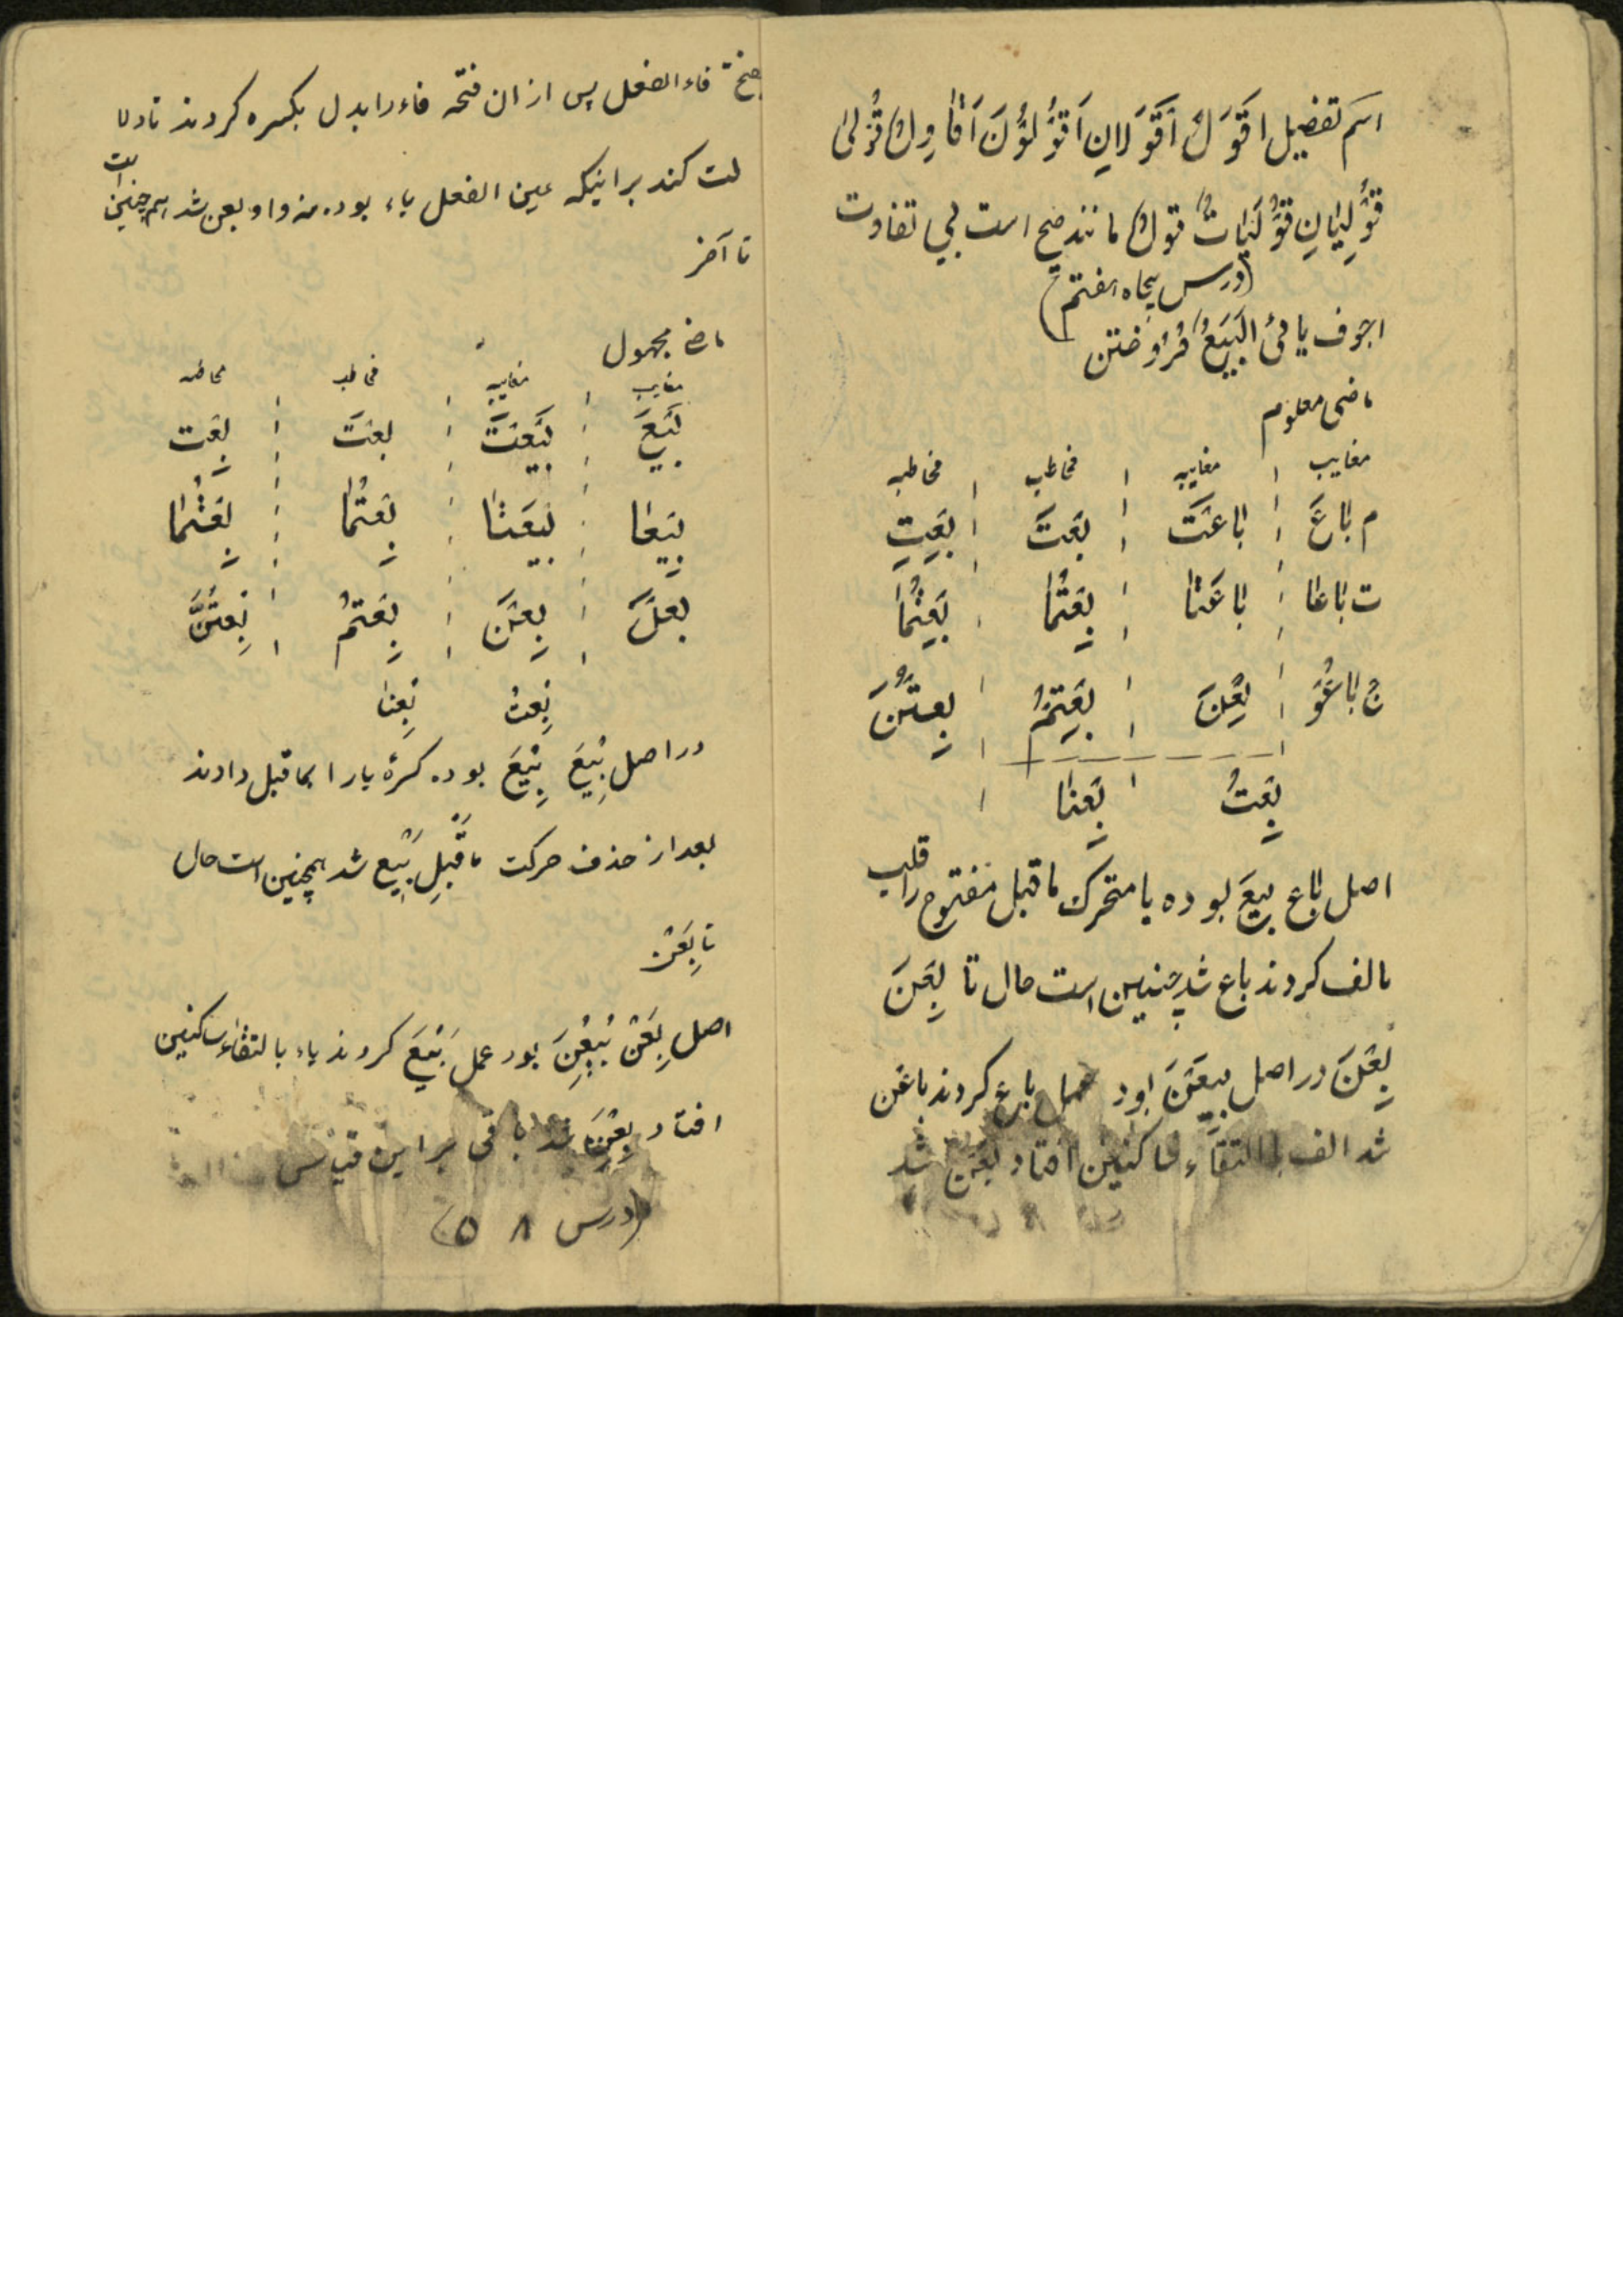 اسم تفضیل اَقْوَلُ اَقْوَلانِ اَقْوَلُونَ اَقاوِلُ قُوْلیٰ
قُوْلَیانِ قُوْلَیاتٌ قُوَلٌ مانند صحیح است بی تفاوت
(درس پنجاه هفتم)
اجوف یائی اَلْبَیْعُ فروختن
ماضی معلوم
مغایب مغایبه مخاطب مخاطبه
م باعَ باعَتْ بِعْتَ بِعْتِ
ت باعا باعَتا بِعْتُما بِعْتُما
ج باعُوْ بِعْنَ بِعْتُمْ بِعْتُنَّ
بِعْتُ بِعْنا
اصل باع بیعَ بوده یا متحرک ماقبل مفتوح را قلب
بالف کردند باع شد چنین است حال تا بِعْنَ
بِعْنَ در اصل بیعْنَ بود عمل باع کردند باعْن
شد الف بالتقاء ساکنین افتاد بعْن شد
فاء الفعل پس از ان فتحه فاء را بدل بکسره کردند تا دلا
لت کند بر اینکه عین الفعل یاء بوده نه واو بعن شد همچنین است
تا آخر
ماضی مجهول
مغایب مغایبه مخاطب مخاطبه
بِیْعَ بِیْعَتْ بِعْتَ بِعْتِ
بِیْعا بِیْعَتا بِعْتُما بِعْتُما
بِعْنَ بِعْتُمْ بِعْتُنَّ
بِعْتُ بِعْنا
در اصل بِیْعَ بُیِعَ بوده کسرهٔ یا را بماقبل دادند
بعد از حذف حرکت ماقبل بِیْع شد همچنین است حال
تا بِعْنَ
اصل بِعْنَ بُیِعْنَ بود عمل بِیْعَ کردند یاء بالتقاء ساکنین
افتاد بِعْنَ شد باقی بر این قیاس
(درس ۵۸)